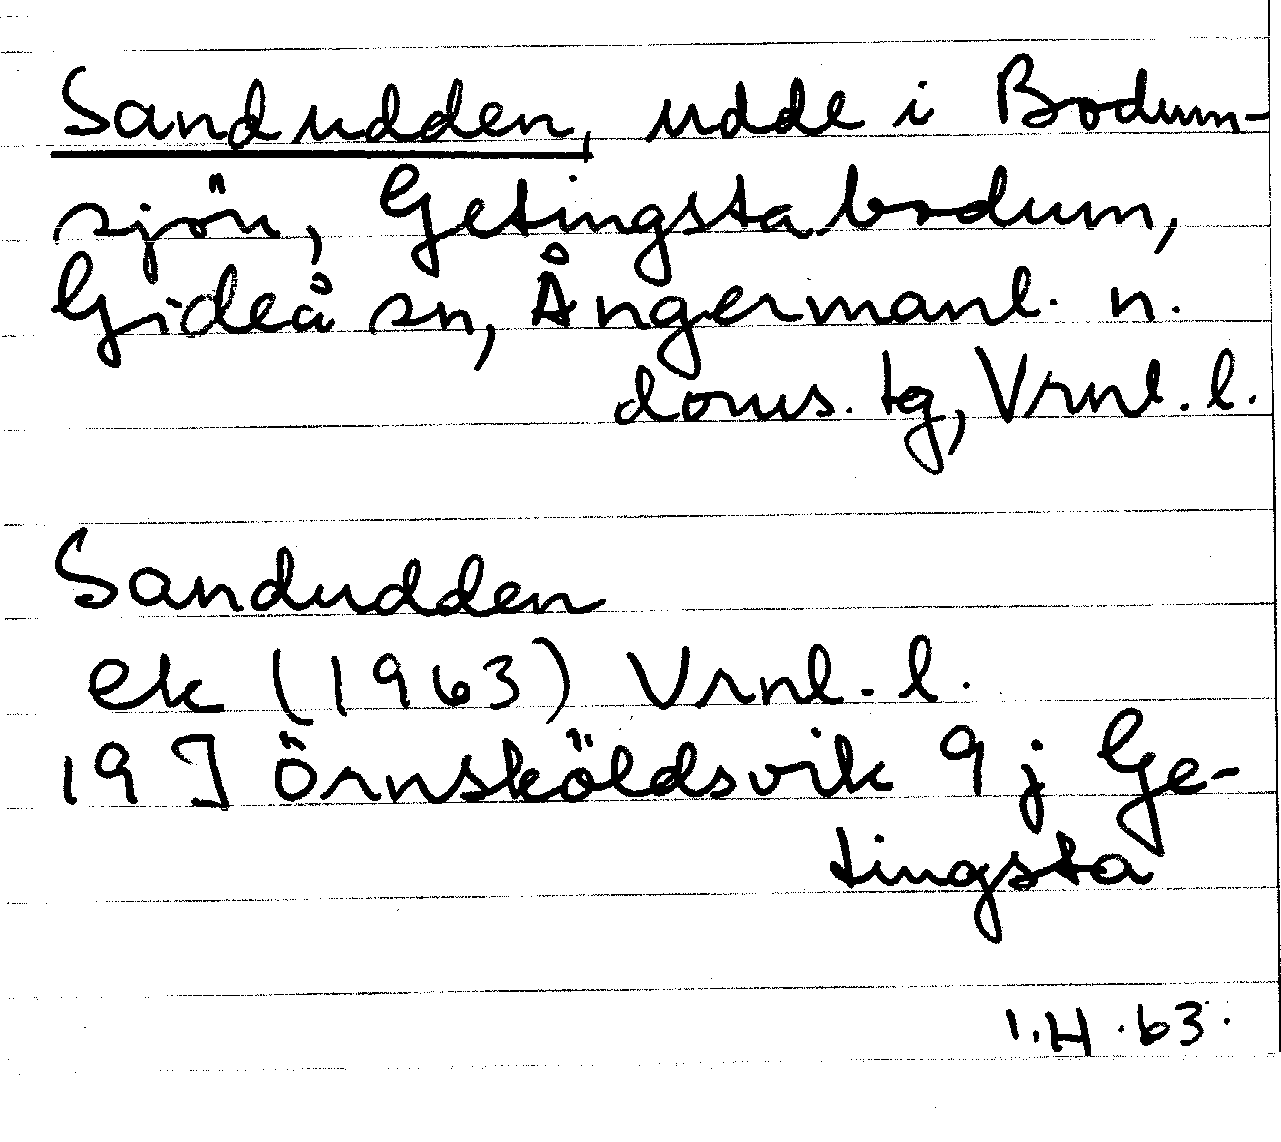 Sandudden, udde i Bodum-
sjön, Getingstabodum,
Gideå sn, Ångermanl. n.
doms. tg, Vrnl. l.
Sandudden
ek (1963) Vrnl. l.
19 J Örnsköldsvik 9 j Ge-
tingsta
I.H. 63.